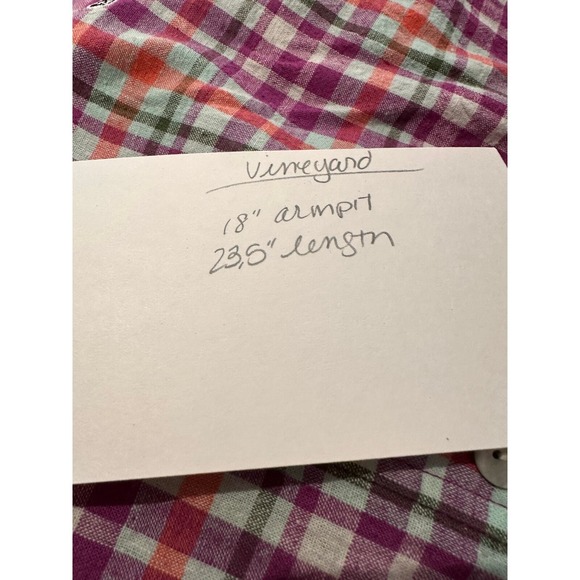 Vineyard
18" armpit
23.5" length